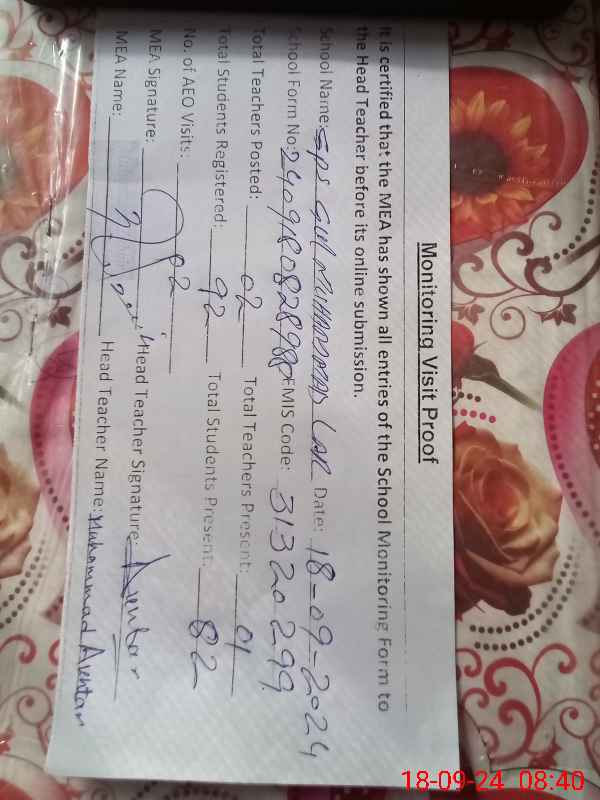 Monitoring Visit Proof
It is certified that the MEA has shown all entries of the School Monitoring Form to
the Head Teacher before its online submission.
School Name: GPS GUL MUHAMMAD LAR Date: 18-09-2024
School Form No: EMIS Code: 31320299
Total Teachers Posted: 02 Total Teachers Present: 01
Total Students Registered: 92 Total Students Present: 82
No. of AEO Visits: 02
MEA Signature: Head Teacher Signature: Akhtar
MEA Name: Head Teacher Name: Muhammad Akhtar
18-09-24 08:40